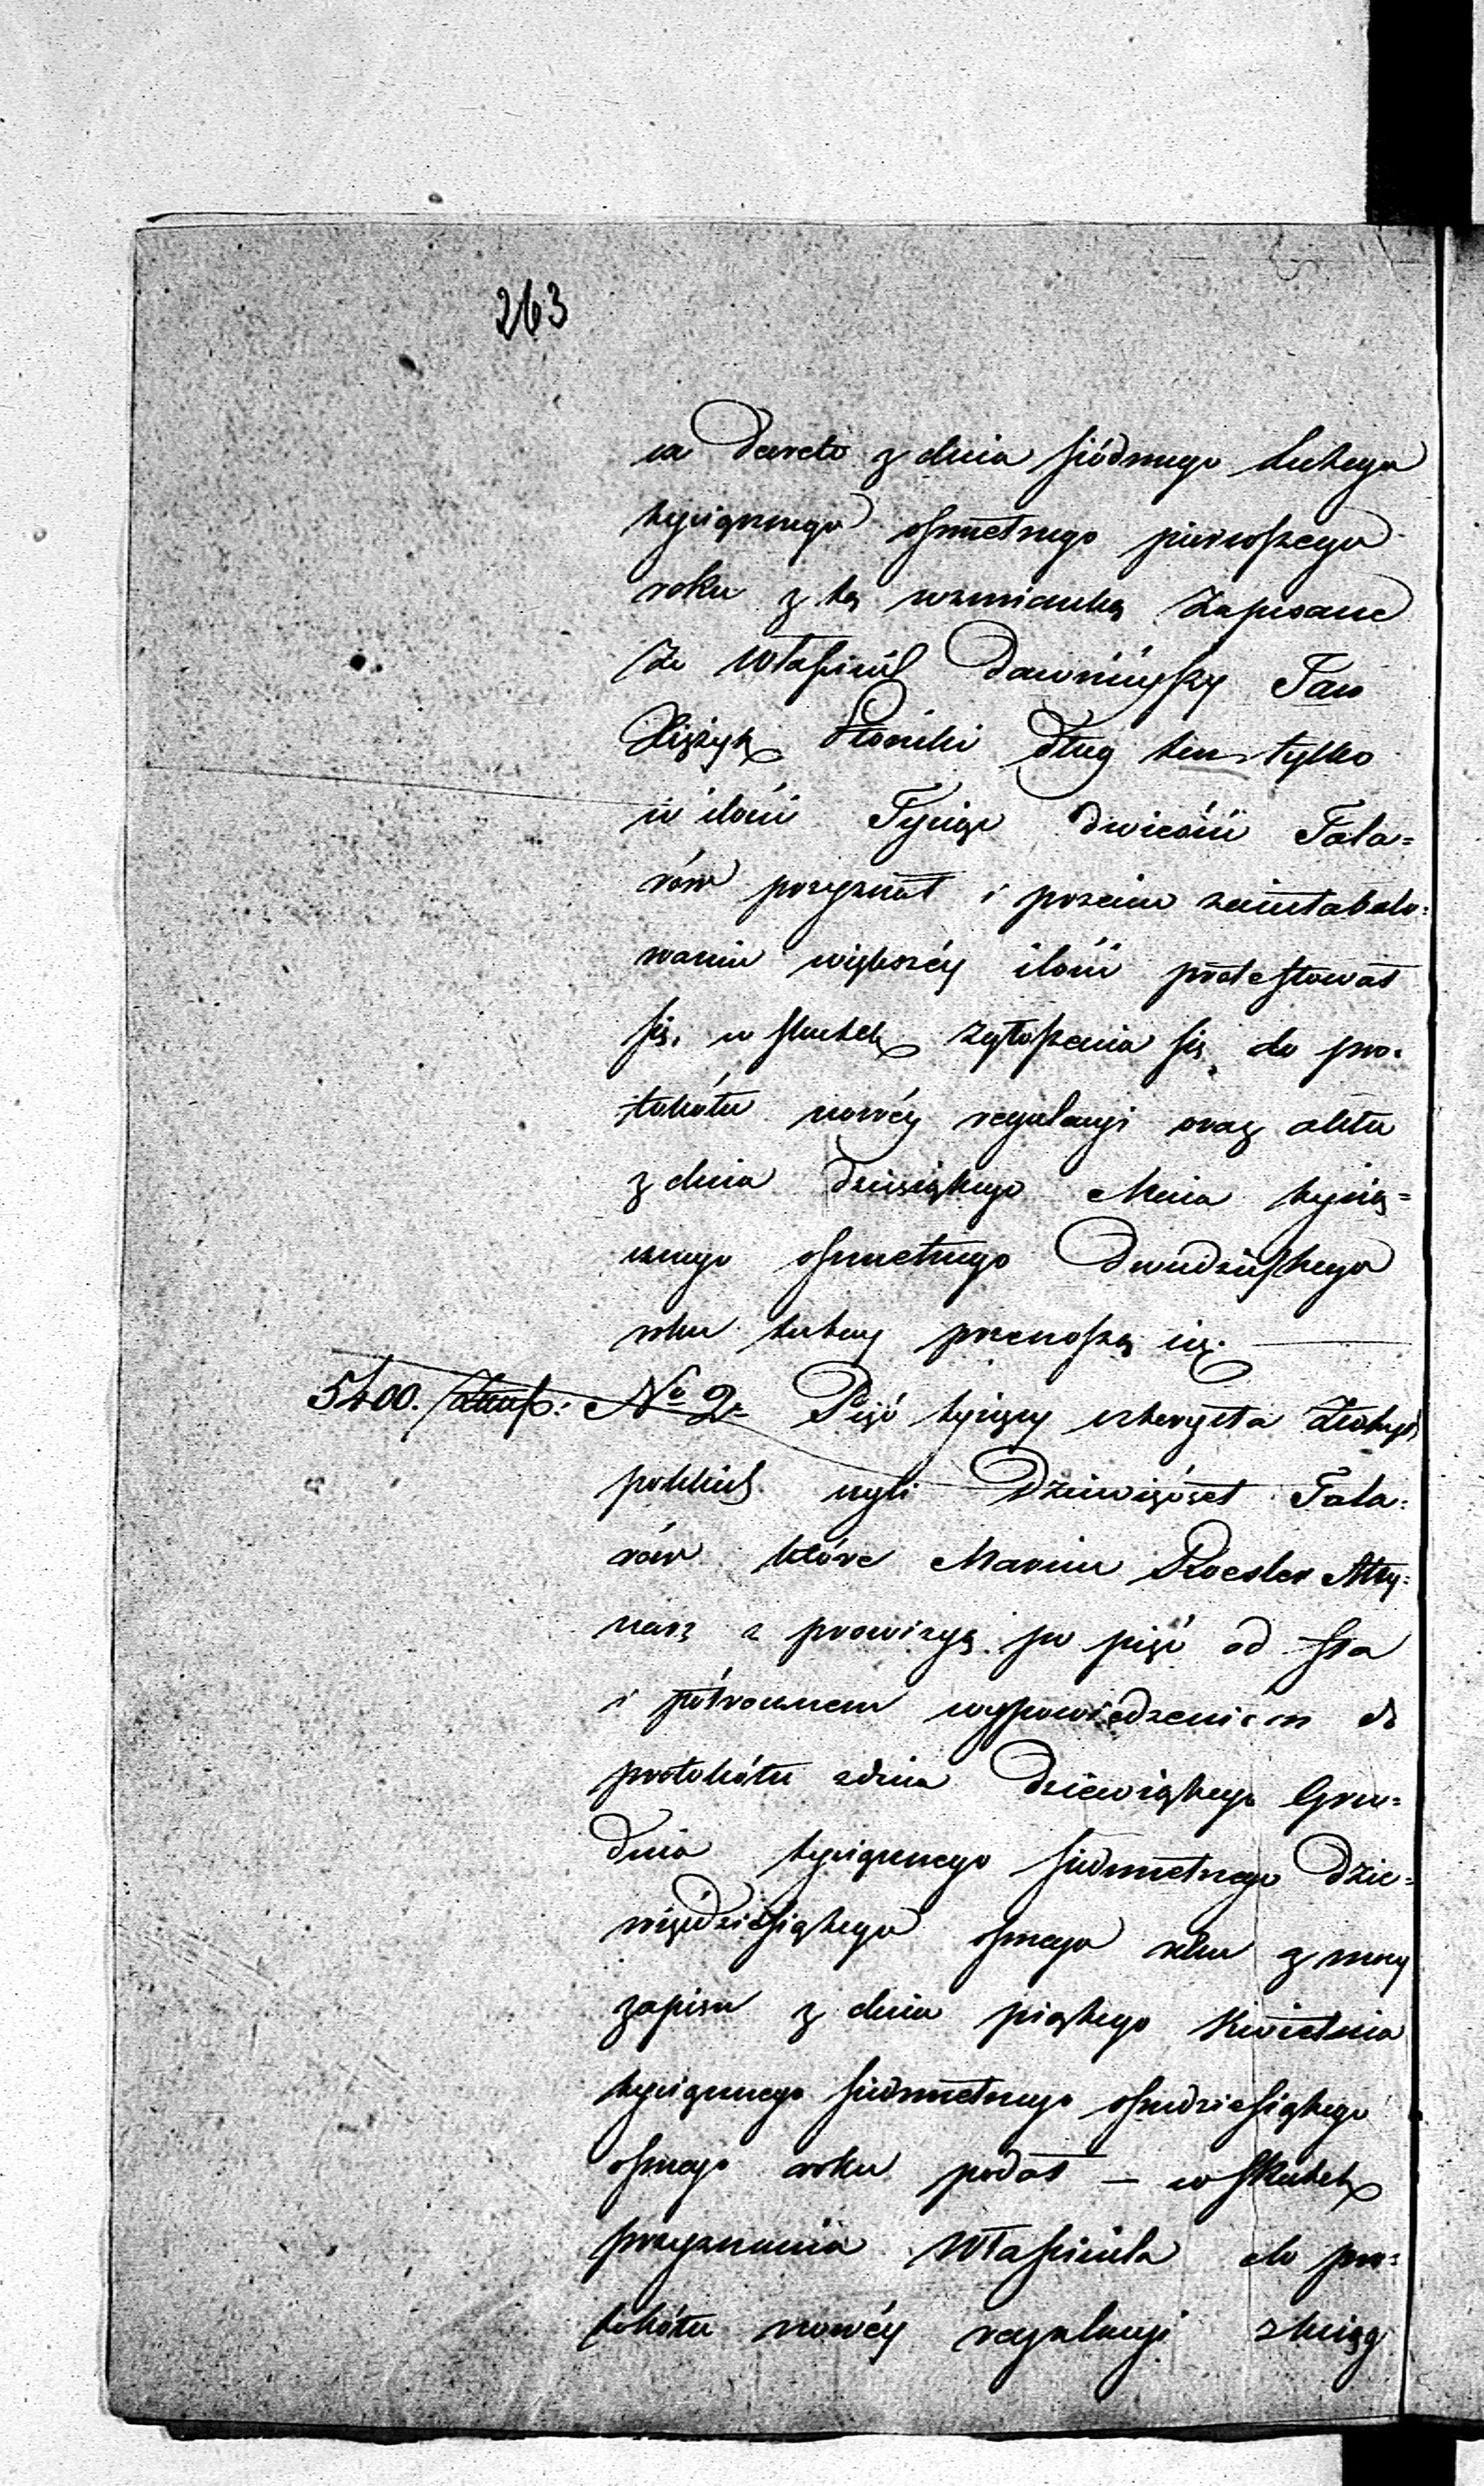 263
va Decreto z dnia siódmego Lutego
tysiącznego osmsetnego pierwszego
roku z tą wzmianką zapisane
że Właściciel Dawnieyszy Jan
Xiężyk Słoński Dług ten tylko
w ilości Tysiąc dwieście Tala=
rów przyznał i przeciw zaintabulo=
waniu większéy ilości protestował
się, w skutek zgłoszenia się do pro=
tokółu nowéy regulacyi oraz aktu
z dnia dziesiątego Maia tysią=
cznego osmsetnego Dwudziestego
roku tutay przenoszą się.
5400. No 2. Pięć tysięcy czterysta Złotych
polskich czyli Dziewięćset Tala=
rów które Marcin Roesler Mły=
narz z prowizyą po pięć od sta
i półrocznem wypowiedzeniem do
protokółu z dnia Dziewiątego Gru=
dnia tysiącznego siedmsetnego Dzie=
więćdziesiątego osmego roku z mocy
zapisu z dnia piątego Kwietnia
tysiącznego siedmsetnego osmdziesiątego
osmego roku podał — w skutek
przyznania Właściciela do pro=
tokółu nowéy regulacyi z ksiąg